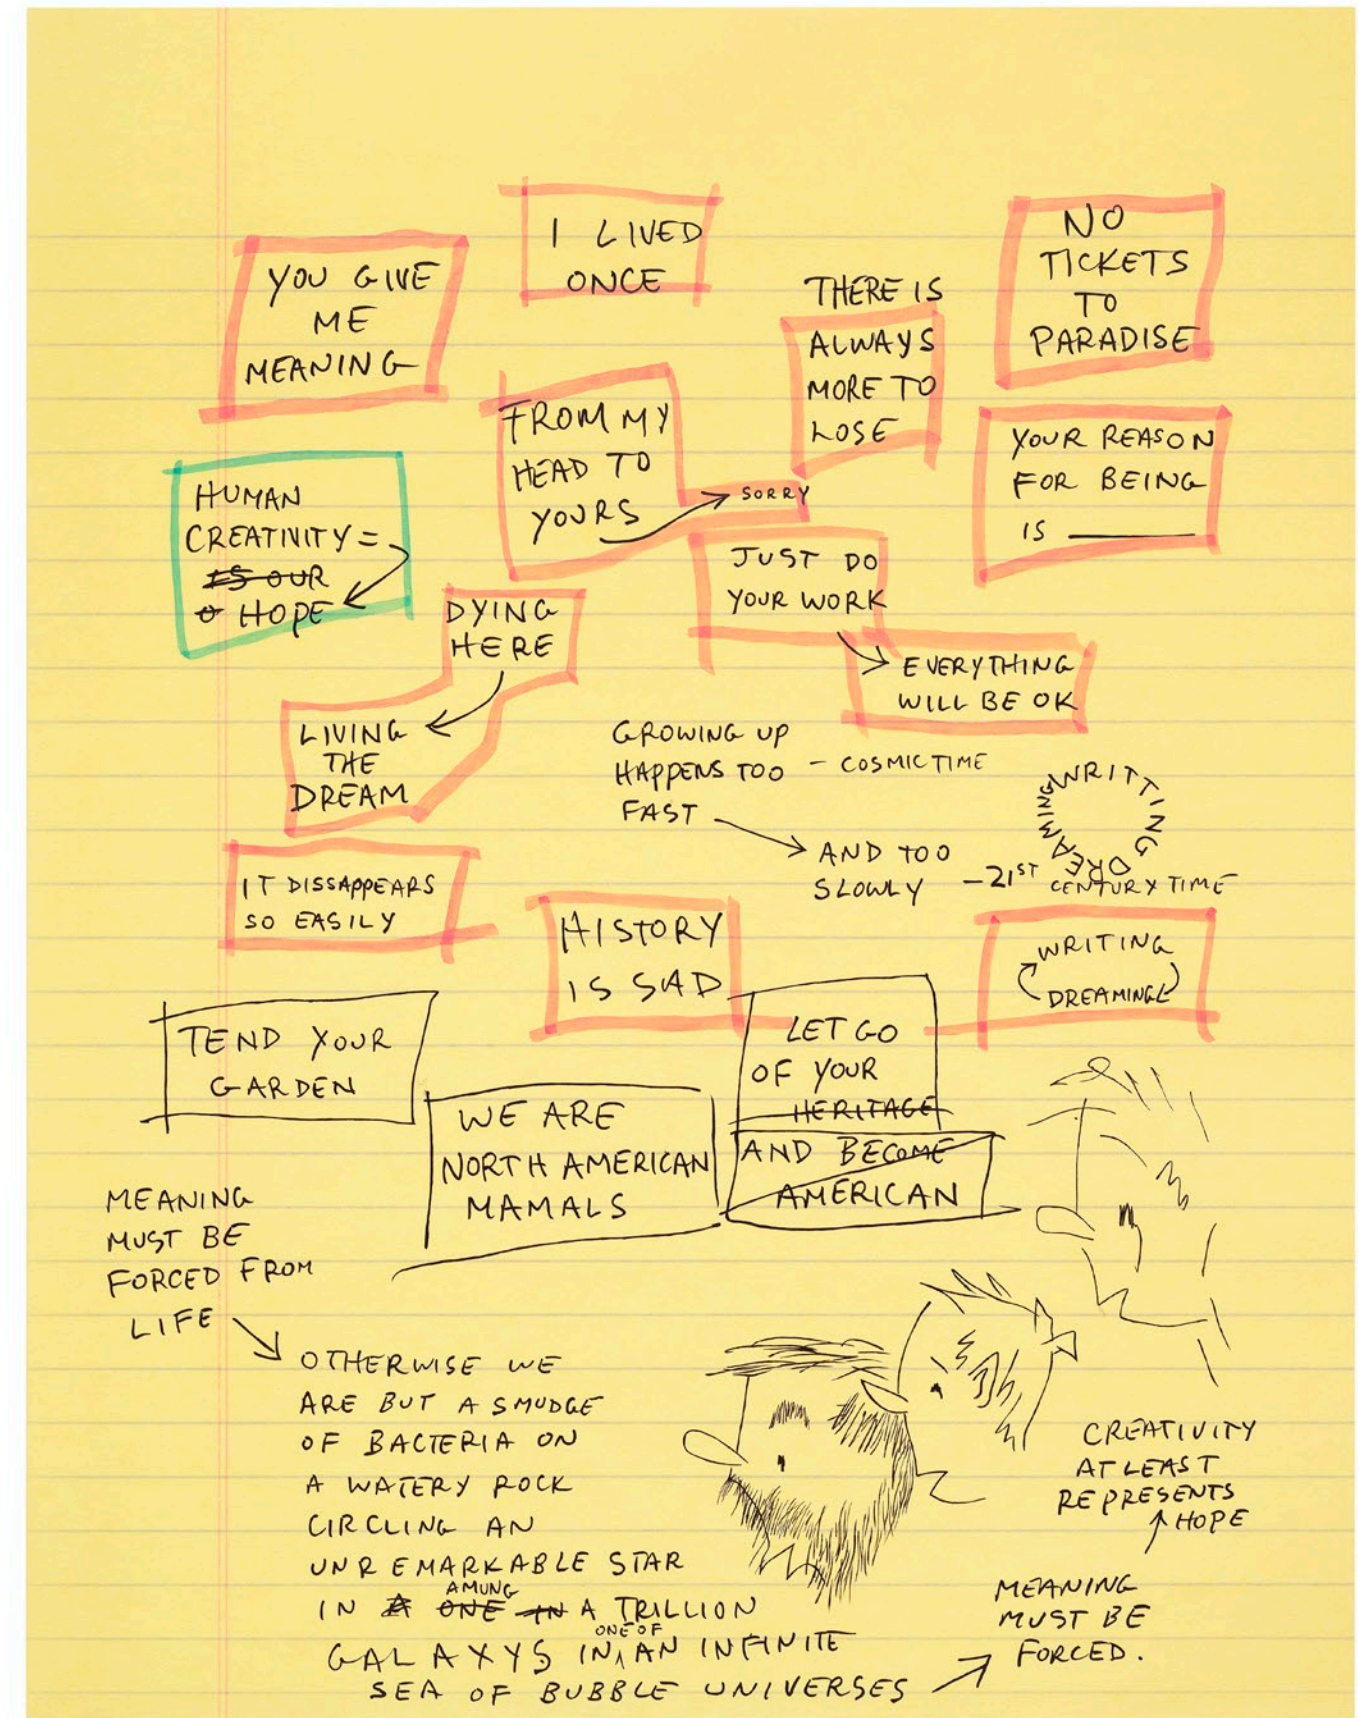 YOU GIVE
ME
MEANING
I LIVED
ONCE
NO
TICKETS
TO
PARADISE
THERE IS
ALWAYS
MORE TO
LOSE
FROM MY
HEAD TO
YOURS
SORRY
YOUR REASON
FOR BEING
IS ______
HUMAN
CREATIVITY =
IS OUR
HOPE
JUST DO
YOUR WORK
EVERYTHING
WILL BE OK
DYING
HERE
LIVING
THE
DREAM
GROWING UP
HAPPENS TOO
FAST
- COSMIC TIME
AND TOO
SLOWLY
- 21ST CENTURY TIME
WRITTING DREAMING
IT DISSAPPEARS
SO EASILY
HISTORY
IS SAD
WRITING
DREAMING
TEND YOUR
GARDEN
WE ARE
NORTH AMERICAN
MAMALS
LET GO
OF YOUR
HERITAGE
AND BECOME
AMERICAN
MEANING
MUST BE
FORCED FROM
LIFE
OTHERWISE WE
ARE BUT A SMUDGE
OF BACTERIA ON
A WATERY ROCK
CIRCLING AN
UNREMARKABLE STAR
IN A ONE IN AMUNG A TRILLION
GALAXYS IN ONE OF AN INFINITE
SEA OF BUBBLE UNIVERSES
MEANING
MUST BE
FORCED.
CREATIVITY
AT LEAST
REPRESENTS
HOPE